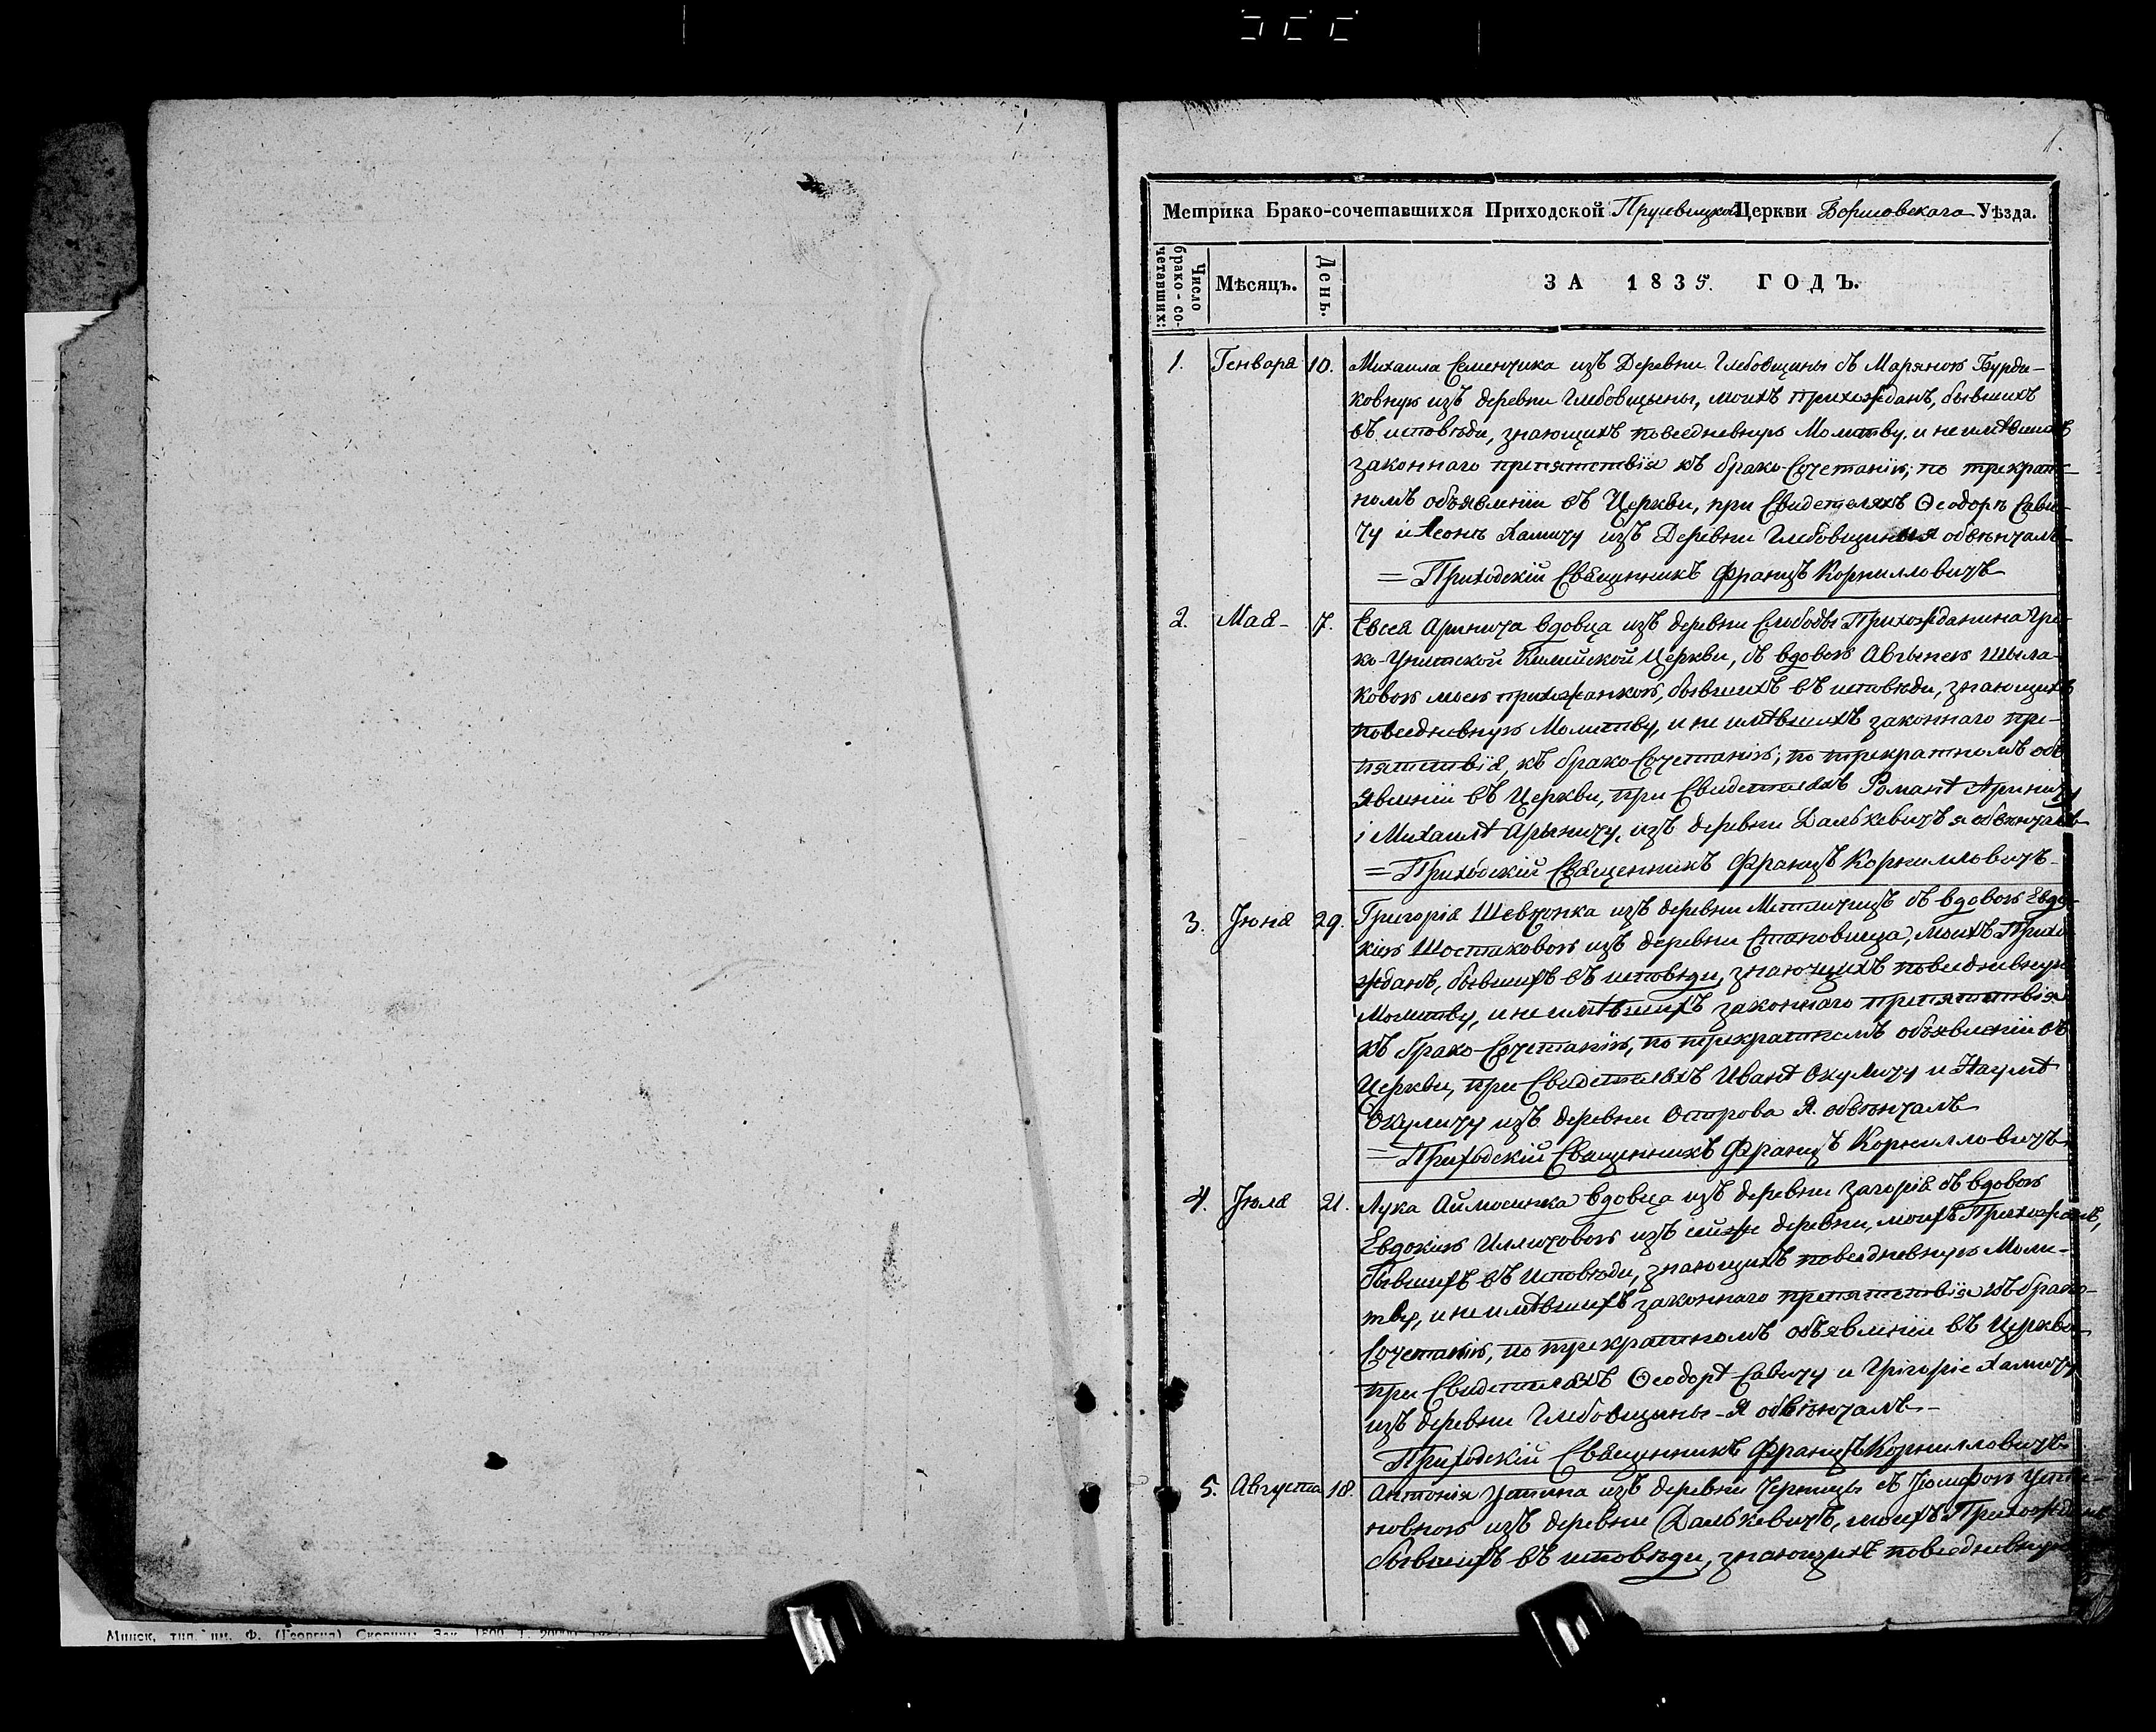 1.
Метрика Брако-сочетавшихся Приходской Прусвицкой Церкви Борисовскаго Уѣзда.
Число брако-со-четавших:
Мѣсяцъ.
День.
ЗА 1835. ГОДЪ.
1. Генваря 10. Михаила Семенчика изъ Деревни Глебовщины съ Маряною Бурди-
ковную изъ деревни Глебовщыны, моихъ прихожданъ, бывшихъ
въ исповѣди, знающихъ повседневную Молитву, и не имѣвшихъ
законнаго препятствія къ брако-Сочетанію; по трекрат-
номъ объявленіи въ Церкви, при Свидетеляхъ Ѳеодорѣ Сави-
чу и Леонѣ Халичу изъ Деревни Глебовщины я обвѣнчалъ
= Приходскій Священникъ Францъ Корнилловичъ
2. Мая 7. Евсея Аринича вдовца изъ деревни Слободы Прихожданина Гре-
ко-Унитской Церкви, съ вдовою Шыла-
ковою моею прихожанкою, бывшихъ въ исповѣди, знающихъ
повседневную Молитву, и не имѣвшихъ законнаго пре-
пятствія, къ брако Сочетанію; по трекратномъ объ
явленіи въ Церкви, при Свидетеляхъ Романѣ Ариничу
і Михаилѣ Арыничу, изъ деревни Далькевичъ я обвѣнчалъ
= Приходскій Священникъ Францъ Корнилловичъ
3. Іюня 29. Григорія Шевчонка изъ деревни Метличицъ съ вдовою Евдо-
кіею Шостаковою изъ деревни Становища, моихъ Прихо
жданъ, бывшихъ въ исповѣди, знающихъ повседневную
Молитву, и не имѣвшихъ законнаго препятствія
къ брако-Сочетанію, по трекратномъ объявленіи въ
Церкви, при Свидетеляхъ Иванѣ Окуличу и Наумѣ
Окуличу изъ деревни Острова Я обвѣнчалъ
= Приходскій Священникъ Францъ Корнилловичъ
4. Іюля 21. Лука вдовца изъ деревни Загорія съ вдовою
Евдокіею Илличовою изъ сейже деревни, моихъ Прихожанъ,
бывшихъ въ Исповѣди, знающихъ повседневную Моли-
тву, и не имѣвшихъ законнаго препятствія къ брако-
Сочетанію, по трекратномъ объявленіи въ Церкви
при Свидетеляхъ Ѳеодорѣ Савичу и Григоріе Халичу
изъ деревни Глебовщины - Я обвѣнчалъ -
Приходскій Священникъ Францъ Корнилловичъ
5. Августа 18. Антонія изъ деревни Черницы съ Іюзефою
новною изъ деревни Далькевичъ, моихъ Прихожданъ
бывшихъ въ исповѣди, знающихъ повседневную
Минск, тип. им. Ф. (Георгия) Скорины. Зак. 1800. Т. 20000